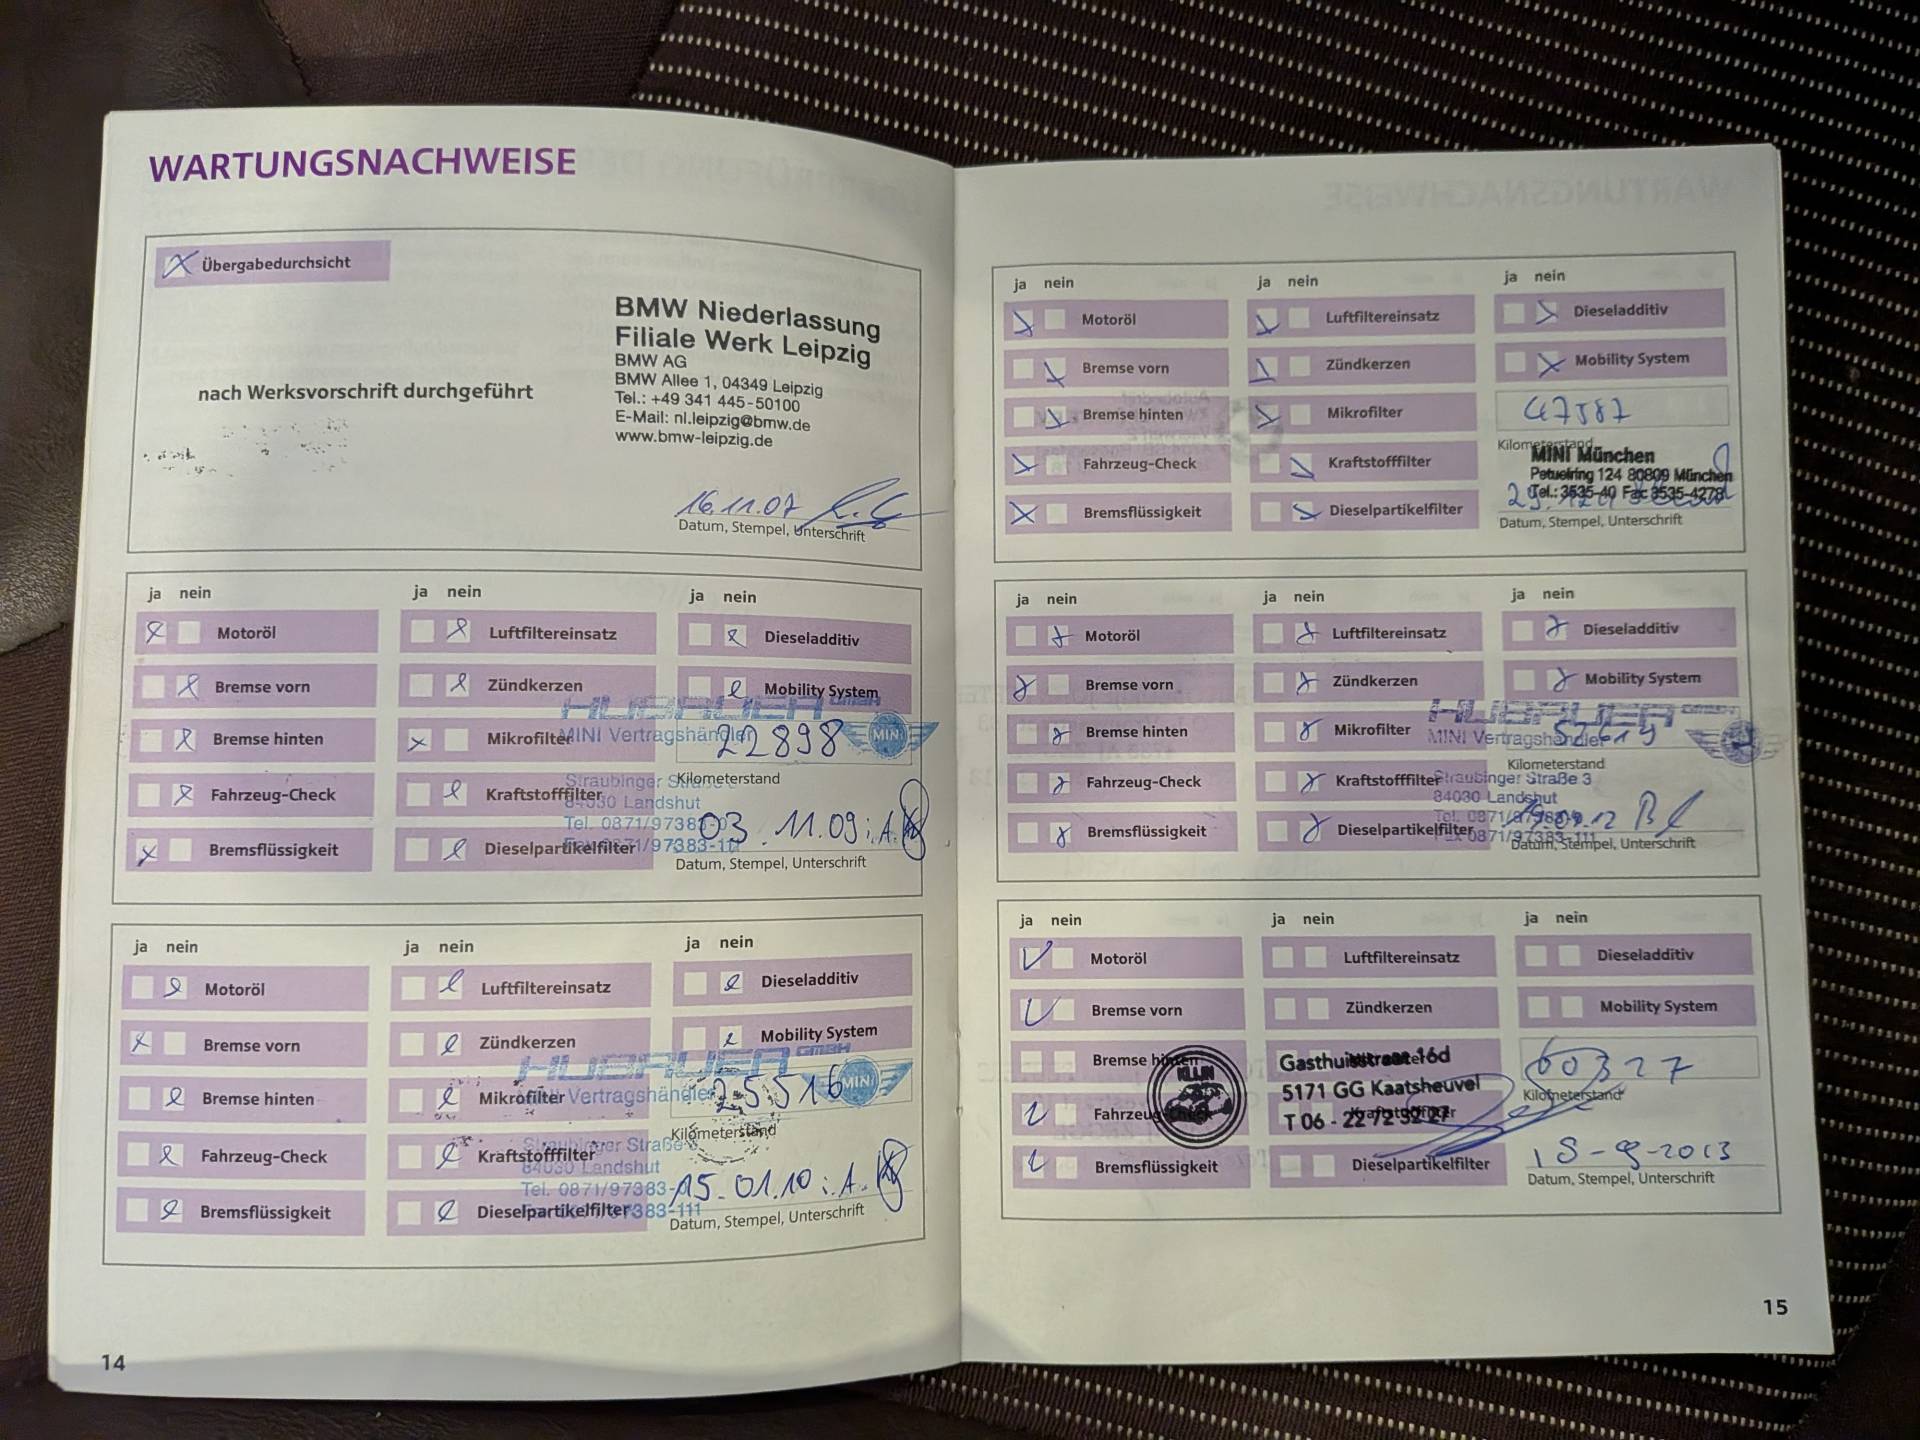 WARTUNGSNACHWEISE
Übergabedurchsicht
BMW Niederlassung
Filiale Werk Leipzig
BMW AG
BMW Allee 1, 04349 Leipzig
Tel.: +49 341 445-50100
E-Mail: nl.leipzig@bmw.de
www.bmw-leipzig.de
nach Werksvorschrift durchgeführt
16.11.07
Datum, Stempel, Unterschrift
ja nein ja nein ja nein
Motoröl Luftfiltereinsatz Dieseladditiv
Bremse vorn Zündkerzen Mobility System
HUBAUER GmbH
Bremse hinten Mikrofilter MINI Vertragshändler 22898 MINI
Kilometerstand
Fahrzeug-Check Kraftstofffilter
Straubinger Straße
84030 Landshut
Tel. 0871/97383-0
03.11.09 i.A.
Bremsflüssigkeit Dieselpartikelfilter 0871/97383-111
Datum, Stempel, Unterschrift
ja nein ja nein ja nein
Motoröl Luftfiltereinsatz Dieseladditiv
Bremse vorn Zündkerzen Mobility System
HUBAUER GmbH
Bremse hinten Mikrofilter Vertragshändler 25516 MINI
Kilometerstand
Fahrzeug-Check Kraftstofffilter
Straubinger Straße
84030 Landshut
Tel. 0871/97383-
15.01.10 i.A.
Bremsflüssigkeit Dieselpartikelfilter
Datum, Stempel, Unterschrift
14
ja nein ja nein ja nein
Motoröl Luftfiltereinsatz Dieseladditiv
Bremse vorn Zündkerzen Mobility System
Bremse hinten Mikrofilter 47587
Kilometerstand
MINI München
Fahrzeug-Check Kraftstofffilter Petuelring 124 80809 München
Tel.: 3535-40 Fax 3535-4278
Bremsflüssigkeit Dieselpartikelfilter
Datum, Stempel, Unterschrift
ja nein ja nein ja nein
Motoröl Luftfiltereinsatz Dieseladditiv
Bremse vorn Zündkerzen Mobility System
HUBAUER GmbH
Bremse hinten Mikrofilter MINI Vertragshändler
Kilometerstand
Fahrzeug-Check Kraftstofffilter Straubinger Straße 3
84030 Landshut
Bremsflüssigkeit Dieselpartikelfilter 0871/97383-111
Datum, Stempel, Unterschrift
ja nein ja nein ja nein
Motoröl Luftfiltereinsatz Dieseladditiv
Bremse vorn Zündkerzen Mobility System
Bremse hinten Gasthuisstraat 16d 60327
KLIJN
5171 GG Kaatsheuvel
Kilometerstand
Fahrzeug-Check T 06 - 22 72 32 27
Bremsflüssigkeit Dieselpartikelfilter 18-9-2013
Datum, Stempel, Unterschrift
15